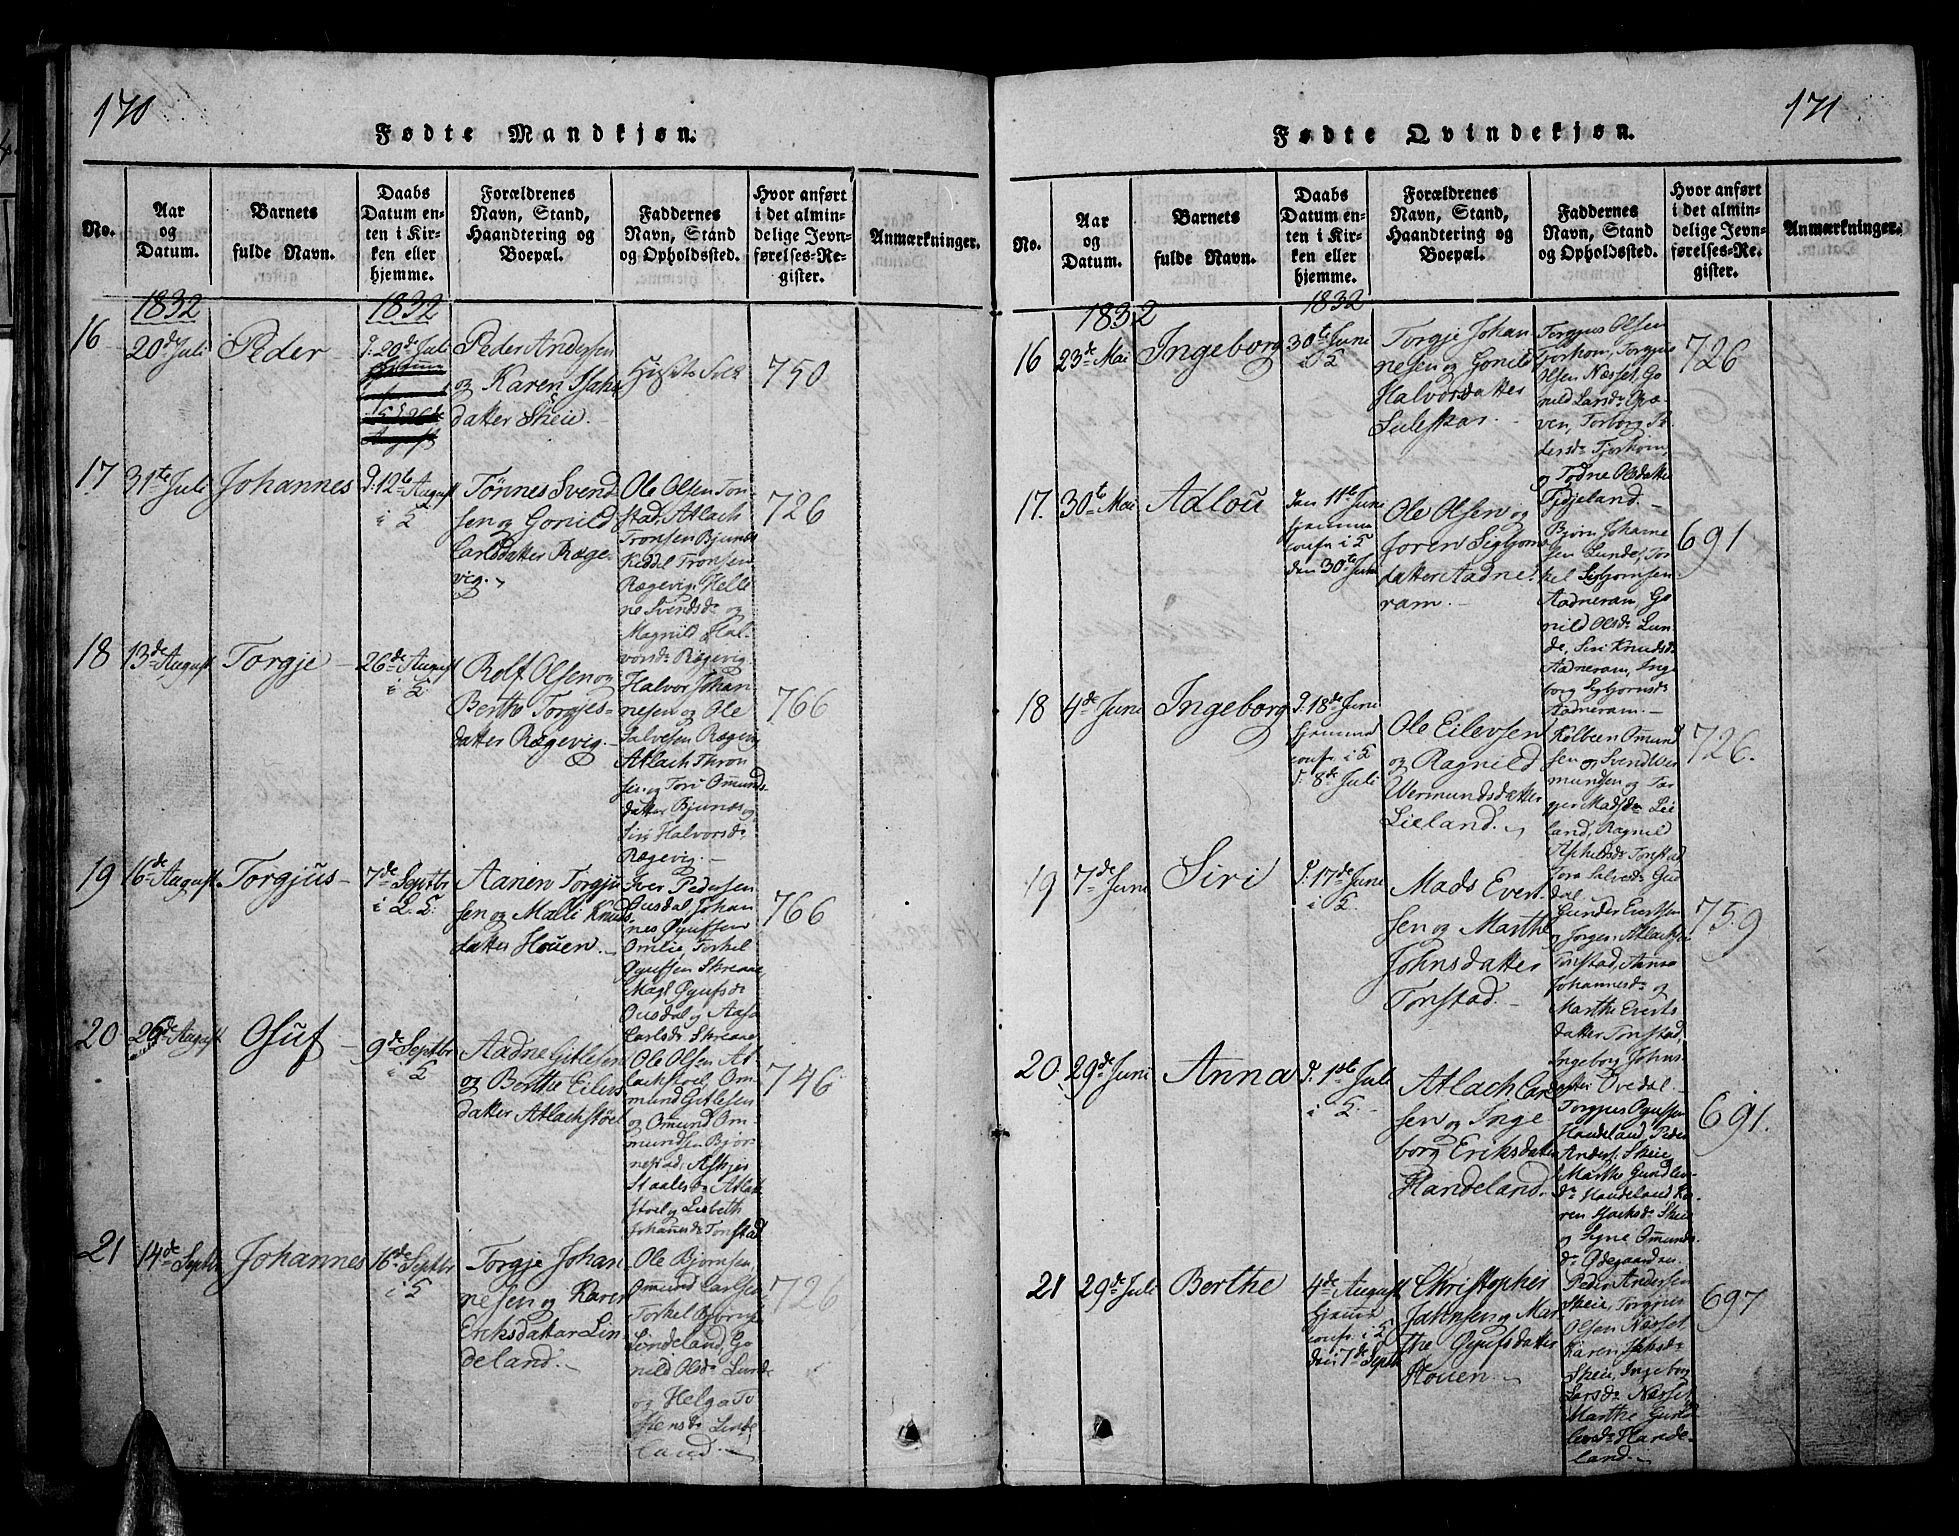 170
Fødte Mandkjøn.
No.
Aar
og
Datum.
Barnets
fulde Navn.
Daabs
Datum en-
ten i Kir-
ken eller
hjemme.
Forældrenes
Navn, Stand,
Haandtering og
Boepæl.
Faddernes
Navn, Stand
og Opholdssted.
Hvor anført
i det almin-
delige Jevn-
førelses-Re-
gister.
Anmærkninger.
1832
1832
16
20de Juli
Peder
d. 20de Juli
Peder Andersen
og Karen
datter Skeie.
750
17
31te Juli
Johannes
d. 12te August
i
Tønnes Svend
sen og Gonild
Carlsdatter Røge-
vig.
Ole Olsen Ton-
stad, Atlach
Tronsen Bjunes
Keddel Tronsen
Røgevig, Helle
ne Svendsdr og
Magnild Hal-
vorsdr Røgevig
726
18
13de August
Torgje
26de August
i
Rolf Olsen og
Berthe Torgjes-
datter Røgevig.
Halvor Johan
nesen og Ole
Salvesen Røgevig
Atlach Thron
sen og Tori Omunds
datter Bjunes og
Siri Halvorsdr
Røgevig.
766
19
16de August
Torgjus
7de Septbr
i
Aanen Torgju
sen og Malli Knuds
datter Houen.
Iver Pedersen
Ousdal, Johan
nes Ogufsen
Omlie, Torkel
Ogufsen Skreaae
Magl Ogufsdr
Ousdal og Aasa
Carlsdr Skreaae
766
20
26de August
Osuf
9de Septbr
i
Aadne Gitlesen
og Berthe Eilers
datter Atlachstöel
Ole Olsen At-
lachstoel, Om-
mund Gitlesen
og Omund Om-
mundsen Bjør-
nestad, Askjer
Staalesdr Atlak
stoel og Lisbeth
Johannsdr Tonstad
746
21
14de Septbr
Johannes
16de Septbr
i
Torgje Johan
nesen og Karen
Eriksdatter Lin
deland.
Ole Bjørnsen,
Omund Carlsen
Torkel
Lindeland, Go
nild Olsdr Lunde
og Helga To
Linde
land.
726
171
Fødte Qvindekjøn.
No.
Aar
og
Datum.
Barnets
fulde Navn.
Daabs
Datum en-
ten i Kir-
ken eller
hjemme.
Forældrenes
Navn, Stand,
Haandtering og
Boepæl.
Faddernes
Navn, Stand
og Opholdssted.
Hvor anført
i det almin-
delige Jevn-
førelses-Re-
gister.
Anmærkninger.
1832
1832
16
23de Mai
Ingeborg
30te Juni
i
Torgje Johan
nesen og Gonild
Halvorsdatter
Suleskar.
Torgjus Olsen
Tjorhom, Torgjus
Olsen Næsset, Go
nild Larsdr
ven, Torborg
Tjorhom,
og Todne Olsdatter
Fidjeland.
726
17.
30te Mai
Adlou
den 11te Juni
hjemme
conf. i
den 30te Juni
Ole Olsen og
Joren Sigbjørns
datter Aadne
ram.
Bjørn Johanne
sen Lunde, Tor
kel Sigbjørnsen
Aadneram, Go
nild Olsdr Lun
de, Siri Knudsdr
Aadneram, Inge
borg Sigbjørnsdr
Aadneram.
691
18
4de Juni
Ingeborg
d. 18de Juni
hjemme
conf. i
d. 8de Juli
Ole Eilevsen
og Ragnild
Vermundsdatter
Lieland.
Kolbeen Omund
sen og Svend Ver
mundsen og Tor
gjer Madsdr Lie
land, Ragnild
Tonstad
Tora Salvesdr Gud
dal
726.
19
7de Juni
Siri
d. 17de Juni
i
Mads Evert-
sen og Marthe
Johnsdatter
Tonstad.
Gunder Evertsen
og Jørgen Atlachsen
Tonstad, Anna
Johannesdr og
Marthe Everts
datter Tonstad,
Ingeborg Johns-
datter Ovedal
759
20.
29de Juni
Anna
d. 1ste Juli
i
Atlach Carl
sen og Inge
borg Eriksdatter
Handeland.
Torgjus Ogufsen
Handeland, Peder
Anders. Skeie,
Marthe Gundlev-
dr Handeland, Ka
ren Skeie
og Signe Omunds
dr Ødegaarden.
691.
21
29de Juli
Berthe
4de August
hjemme
conf. i
den 7de Septbr
Christopher
og Mar-
the Ogufsdatter
Houen.
Peder Andersen
Skeie, Torgjus
Olsen Næsset
Karen
Skeie, Ingeborg
Larsdr Næsset
Marthe Gund
levsdr Hande-
land.
697